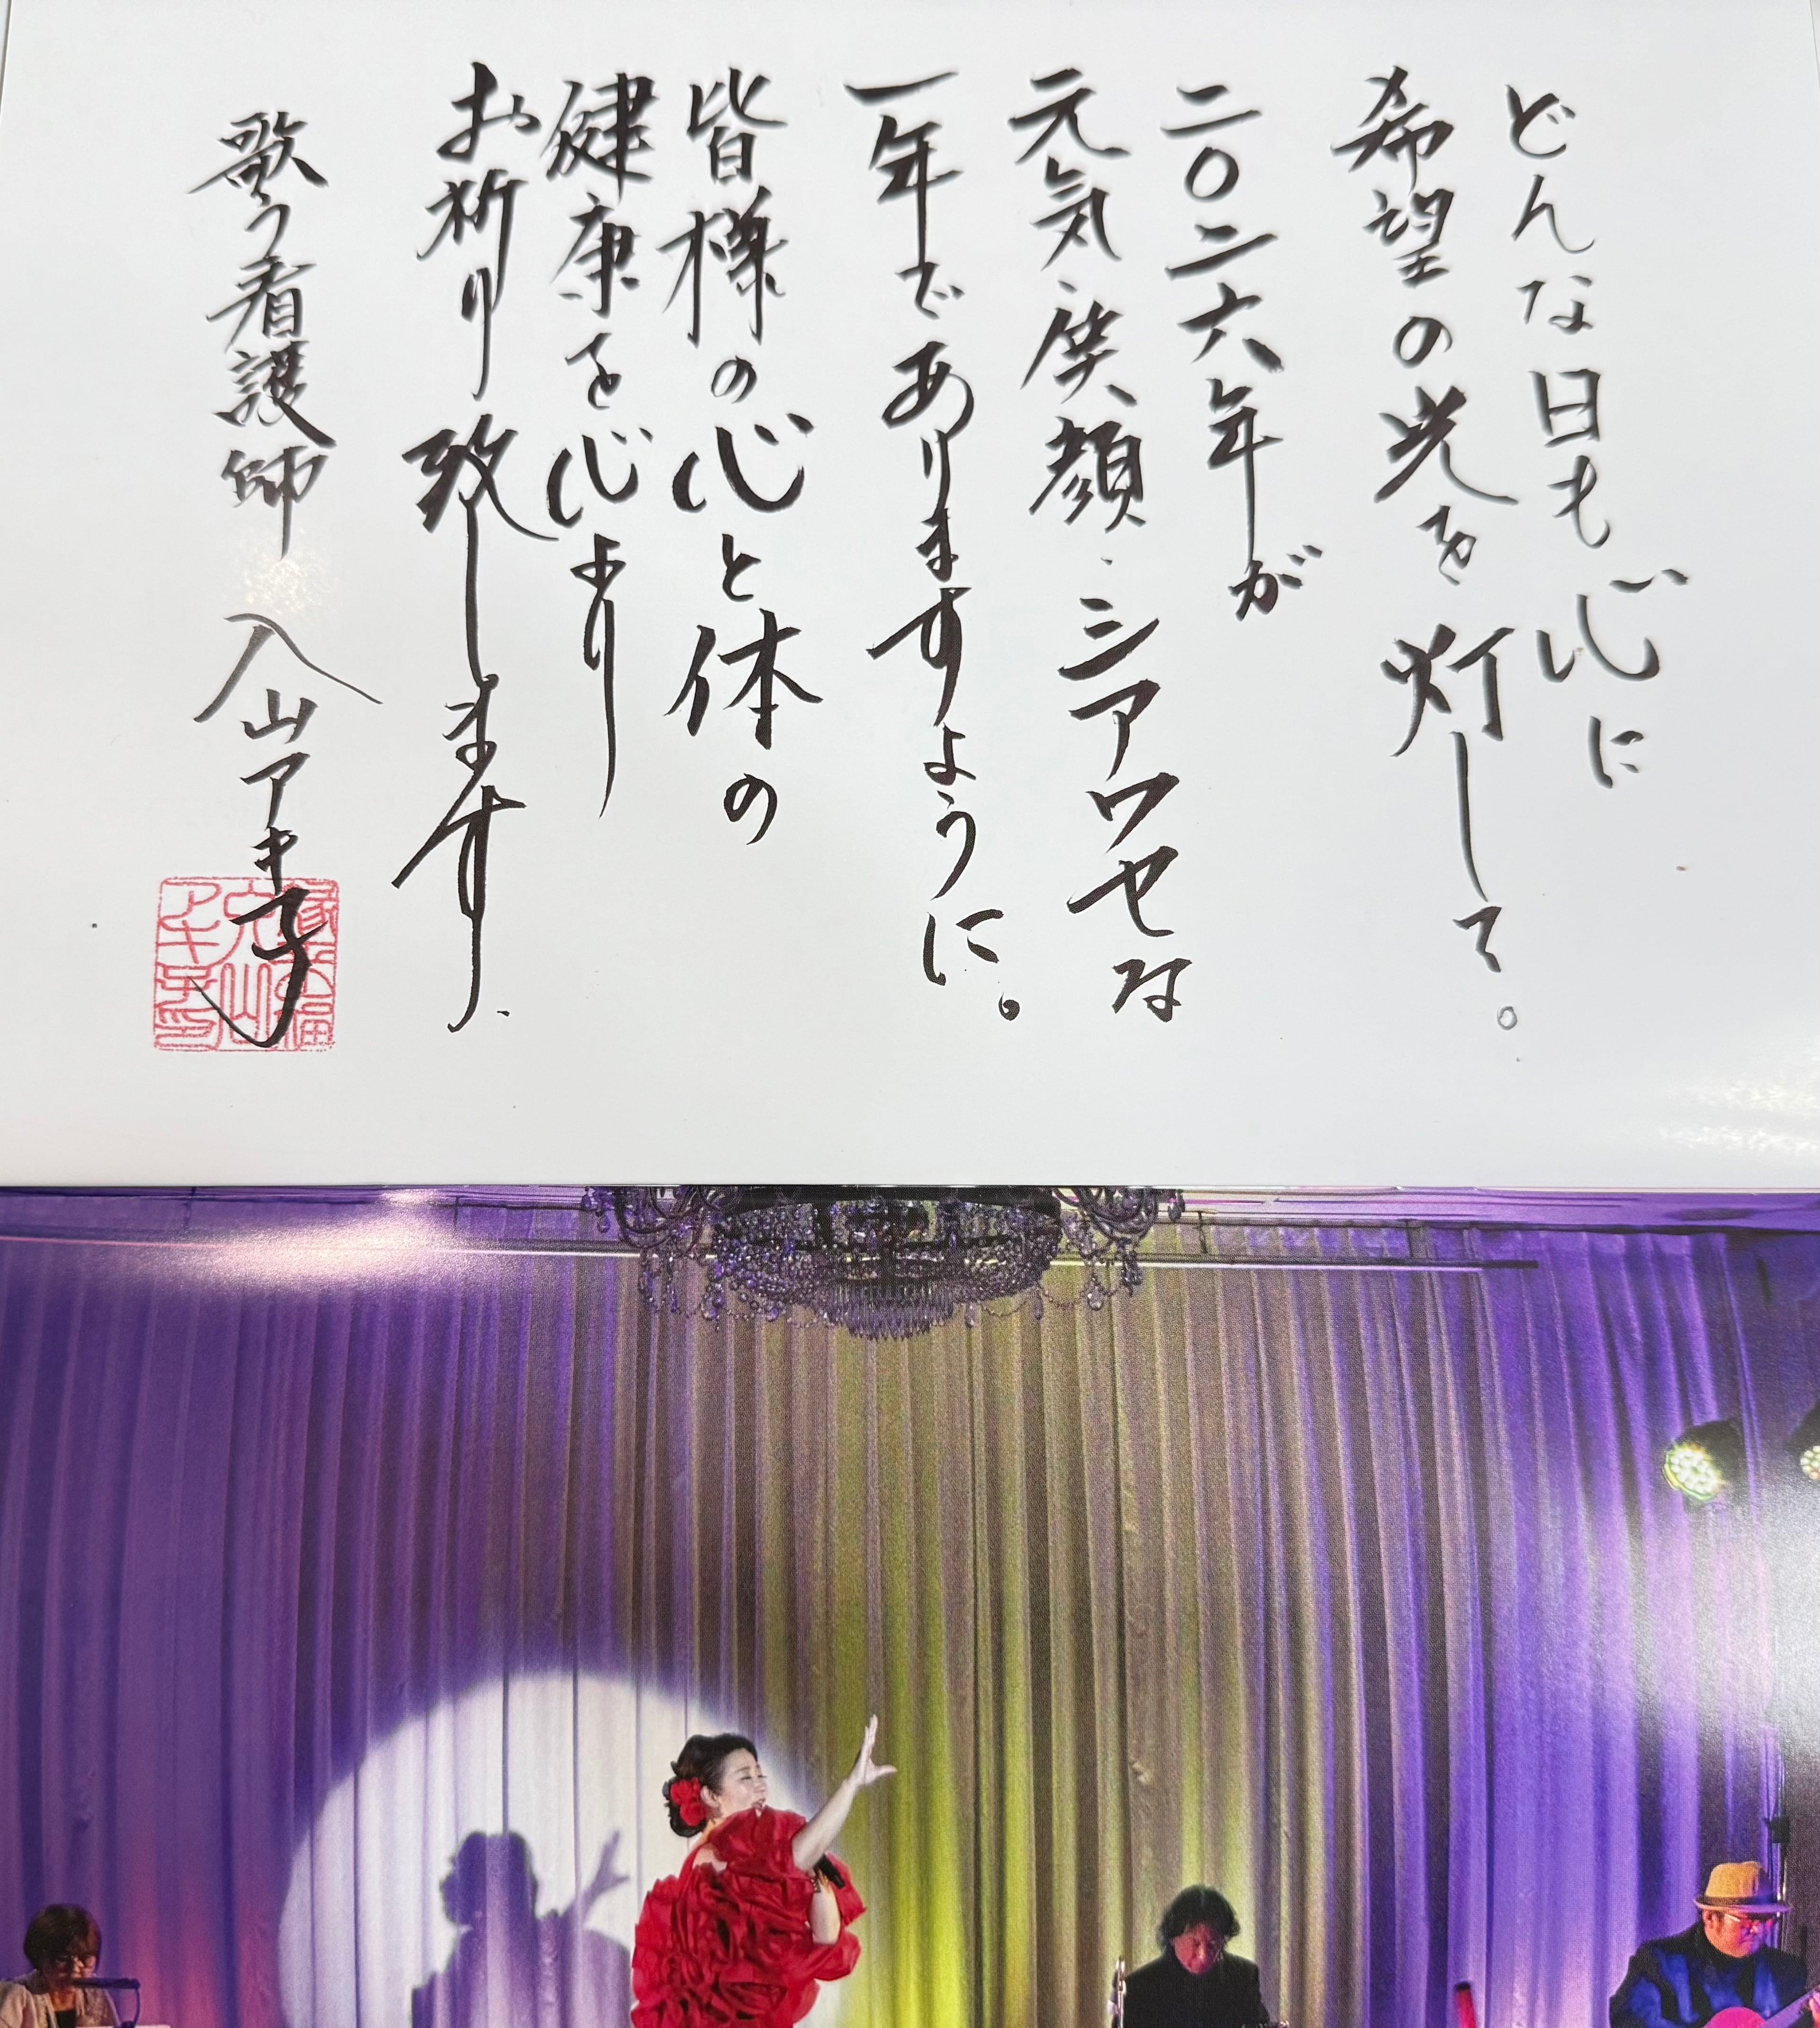 どんな日も心に
希望の光を灯して。
二〇二六年が
元気・笑顔・シアワセな
一年でありますように。
皆様の心と体の
健康を心より
お祈り致します
歌う看護師 入山アキ子